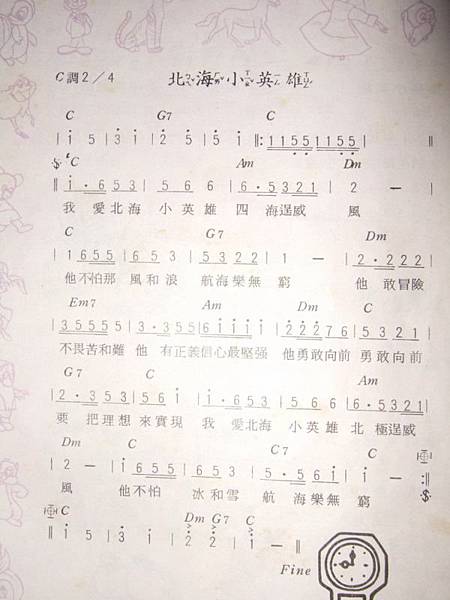 C調2／4 北海小英雄
C G7 C
| i 5 | 3 i | 2 5 | 5 i ‖: 1155 1155 | ‖
C Am Dm
‖ i · 6 5 3 | 5 6 6 | 6 · 5 3 2 1 | 2 — |
我 愛北海 小英雄 四 海逞威 風
C G7 Dm
| 1 6 5 5 | 6 5 3 | 5 3 2 2 | 1 — | 2 · 2 2 2 |
他不怕那 風和浪 航海樂無 窮 他 敢冒險
Em7 Am Dm C
| 3 5 5 5 5 | 3 · 3 5 5 | 6 i i i i | 2 2 2 7 6 | 5 3 2 1 |
不畏苦和難 他 有正義信心最堅强 他勇敢向前 勇敢向前
G7 C Am
| 2 · 3 5 3 | 5 6 5 | i · 6 5 3 | 5 6 6 | 6 · 5 3 2 1 |
要 把理想 來實現 我 愛北海 小英雄 北 極逞威
Dm C C7 C
| 2 — | i 6 5 5 | 6 5 3 | 5 · 5 6 i | i — :‖
風 他不怕 冰和雪 航 海樂無 窮
C Dm G7 C
‖ i 5 | 3 i | 2 2 | i — ‖
Fine